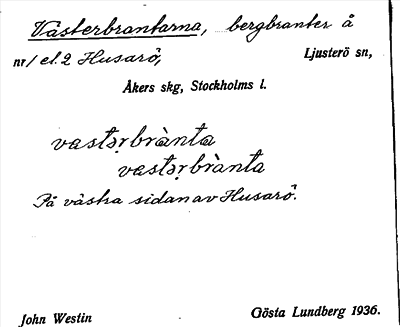 Västerbrantarna, bergbranter å
nr 1 el. 2 Husarö, Ljusterö sn,
Åkers skg, Stockholms l.
vastərbrànta
vastərbrànta
På västra sidan av Husarö.
John Westin Gösta Lundberg 1936.